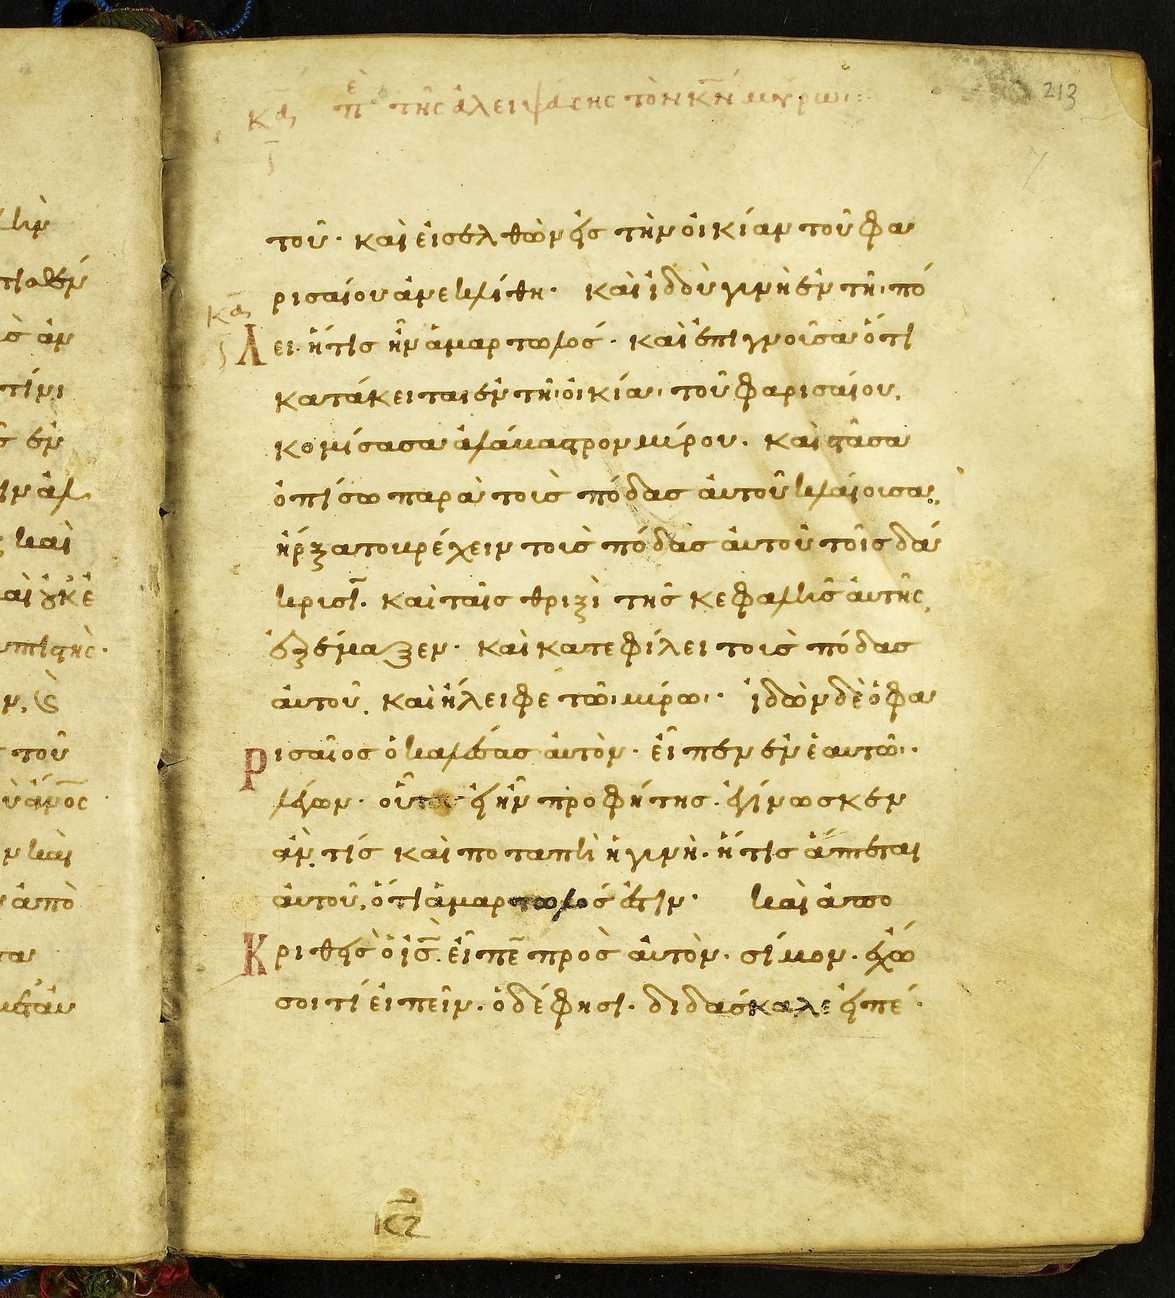 213
τῆς ἀλειψάσης τὸν κ̅ν̅ μύρω
τοῦ· καὶ εἰσελθὼν εἰς τὴν οἰκίαν τοῦ φα
ρισαίου ἀνεκλίθη· καὶ ἰδοὺ γυνὴ ἐν τῆ πό
Λει· ἥτις ἦν ἁμαρτωλός· καὶ ἐπιγνοῦσα ὅτι
κατάκειται ἐν τῆ οἰκία τοῦ φαρισαίου,
κομίσασα ἀλάβαστρον μύρου· καὶ στᾶσα
ὀπίσω παρὰ τοὺς πόδας αὐτοῦ κλαίουσα,
ἤρξατο βρέχειν τοὺς πόδας αὐτοῦ τοῖς δά
κρυσι̅· καὶ ταῖς θριξὶ τῆς κεφαλῆς αὐτῆς,
ἐξέμαξεν· καὶ κατεφίλει τοὺς πόδας
αὐτοῦ, καὶ ἤλειφε τῶ μύρω· ἰδὼν δὲ ὁ φα
Ρισαῖος ὁ καλέσας αὐτὸν· εἶπεν ἐν ἑαυτῶ·
λέγων· οὗτος εἰ ἦν προφήτης· ἐγίνωσκεν
ἂν, τίς καὶ ποταπὴ ἡ γυνὴ· ἥτις ἅπτεται
αὐτοῦ, ὅτι ἁμαρτωλός ἐστιν· καὶ ἀπο
Κριθεὶς ὁ ι̅ς̅· εἶπε̅ πρὸς αὐτὸν· σίμον· ἔχω
σοι τί εἰπεῖν· ὁ δέ φησι· διδάσκαλε εἰπέ·